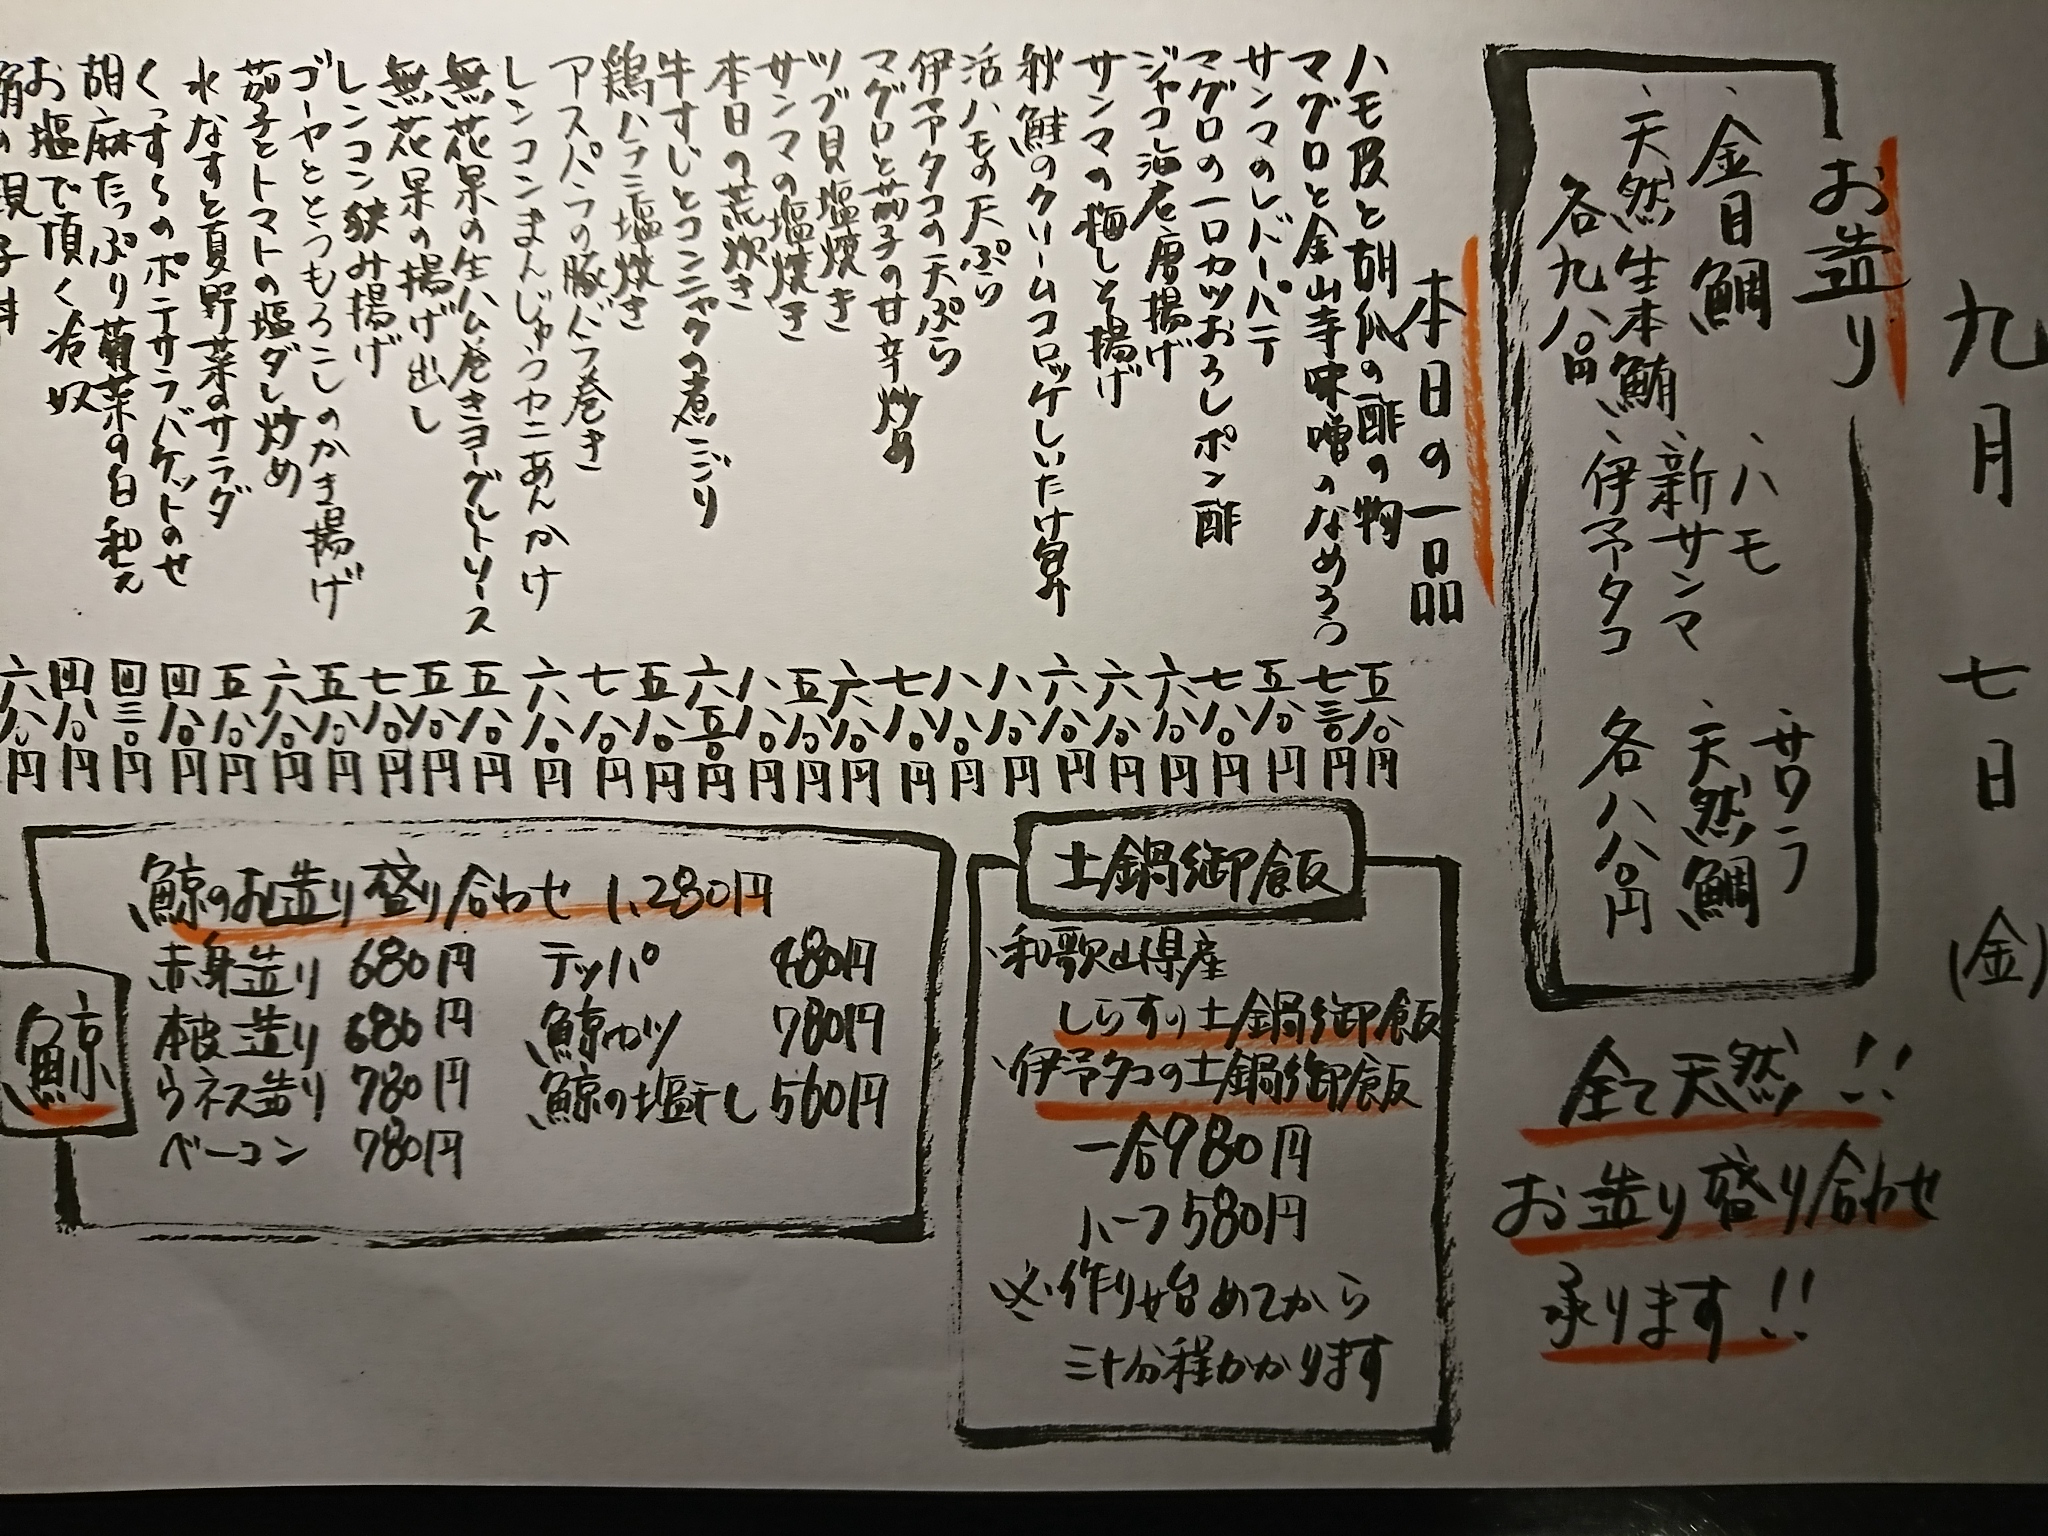 九月七日(金)
お造り
、金目鯛
、天然生本鮪
各九八〇円
、ハモ
、新サンマ
、伊予タコ
、サワラ
、天然鯛
各八八〇円
全て天然!!
お造り盛り合わせ
承ります!!
本日の一品
ハモ皮と胡瓜の酢の物 五八〇円
マグロと金山寺味噌のなめろう 七三〇円
サンマのレバーパテ 五八〇円
マグロの一口カツおろしポン酢 七八〇円
ジャコと海老唐揚げ 六八〇円
サンマの梅しそ揚げ 六八〇円
秋鮭のクリームコロッケしいたけ 六八〇円
活ハモの天ぷら 八八〇円
伊予タコの天ぷら 八八〇円
マグロと茄子の甘辛炒め 七八〇円
ツブ貝塩焼き 六八〇円
サンマの塩焼き 五八〇円
本日の荒炊き 八八〇円
牛すじとコンニャクの煮こごり 六五〇円
鶏ハラミ塩焼き 五八〇円
アスパラの豚バラ巻き 七八〇円
レンコンまんじゅうカニあんかけ 六八〇円
無花果の生ハム巻きヨーグルトソース 五八〇円
無花果の揚げ出し 五八〇円
レンコン挟み揚げ 七八〇円
ゴーヤととうもろこしのかき揚げ 五八〇円
茄子とトマトの塩ダレ炒め 六八〇円
水なすと夏野菜のサラダ 五八〇円
くっすらのポテサラバケットのせ 四八〇円
胡麻たっぷり菊菜の白和え 四三〇円
お塩で頂く冷奴 四八〇円
六八〇円
土鍋御飯
、和歌山県産
しらすの土鍋御飯
、伊予タコの土鍋御飯
一合980円
ハーフ580円
※作り始めてから
三十分程かかります
鯨
鯨のお造り盛り合わせ 1,280円
赤身造り 680円
本皮造り 680円
ウネス造り 780円
ベーコン 780円
テッパ 480円
鯨カツ 780円
鯨の塩干し 560円